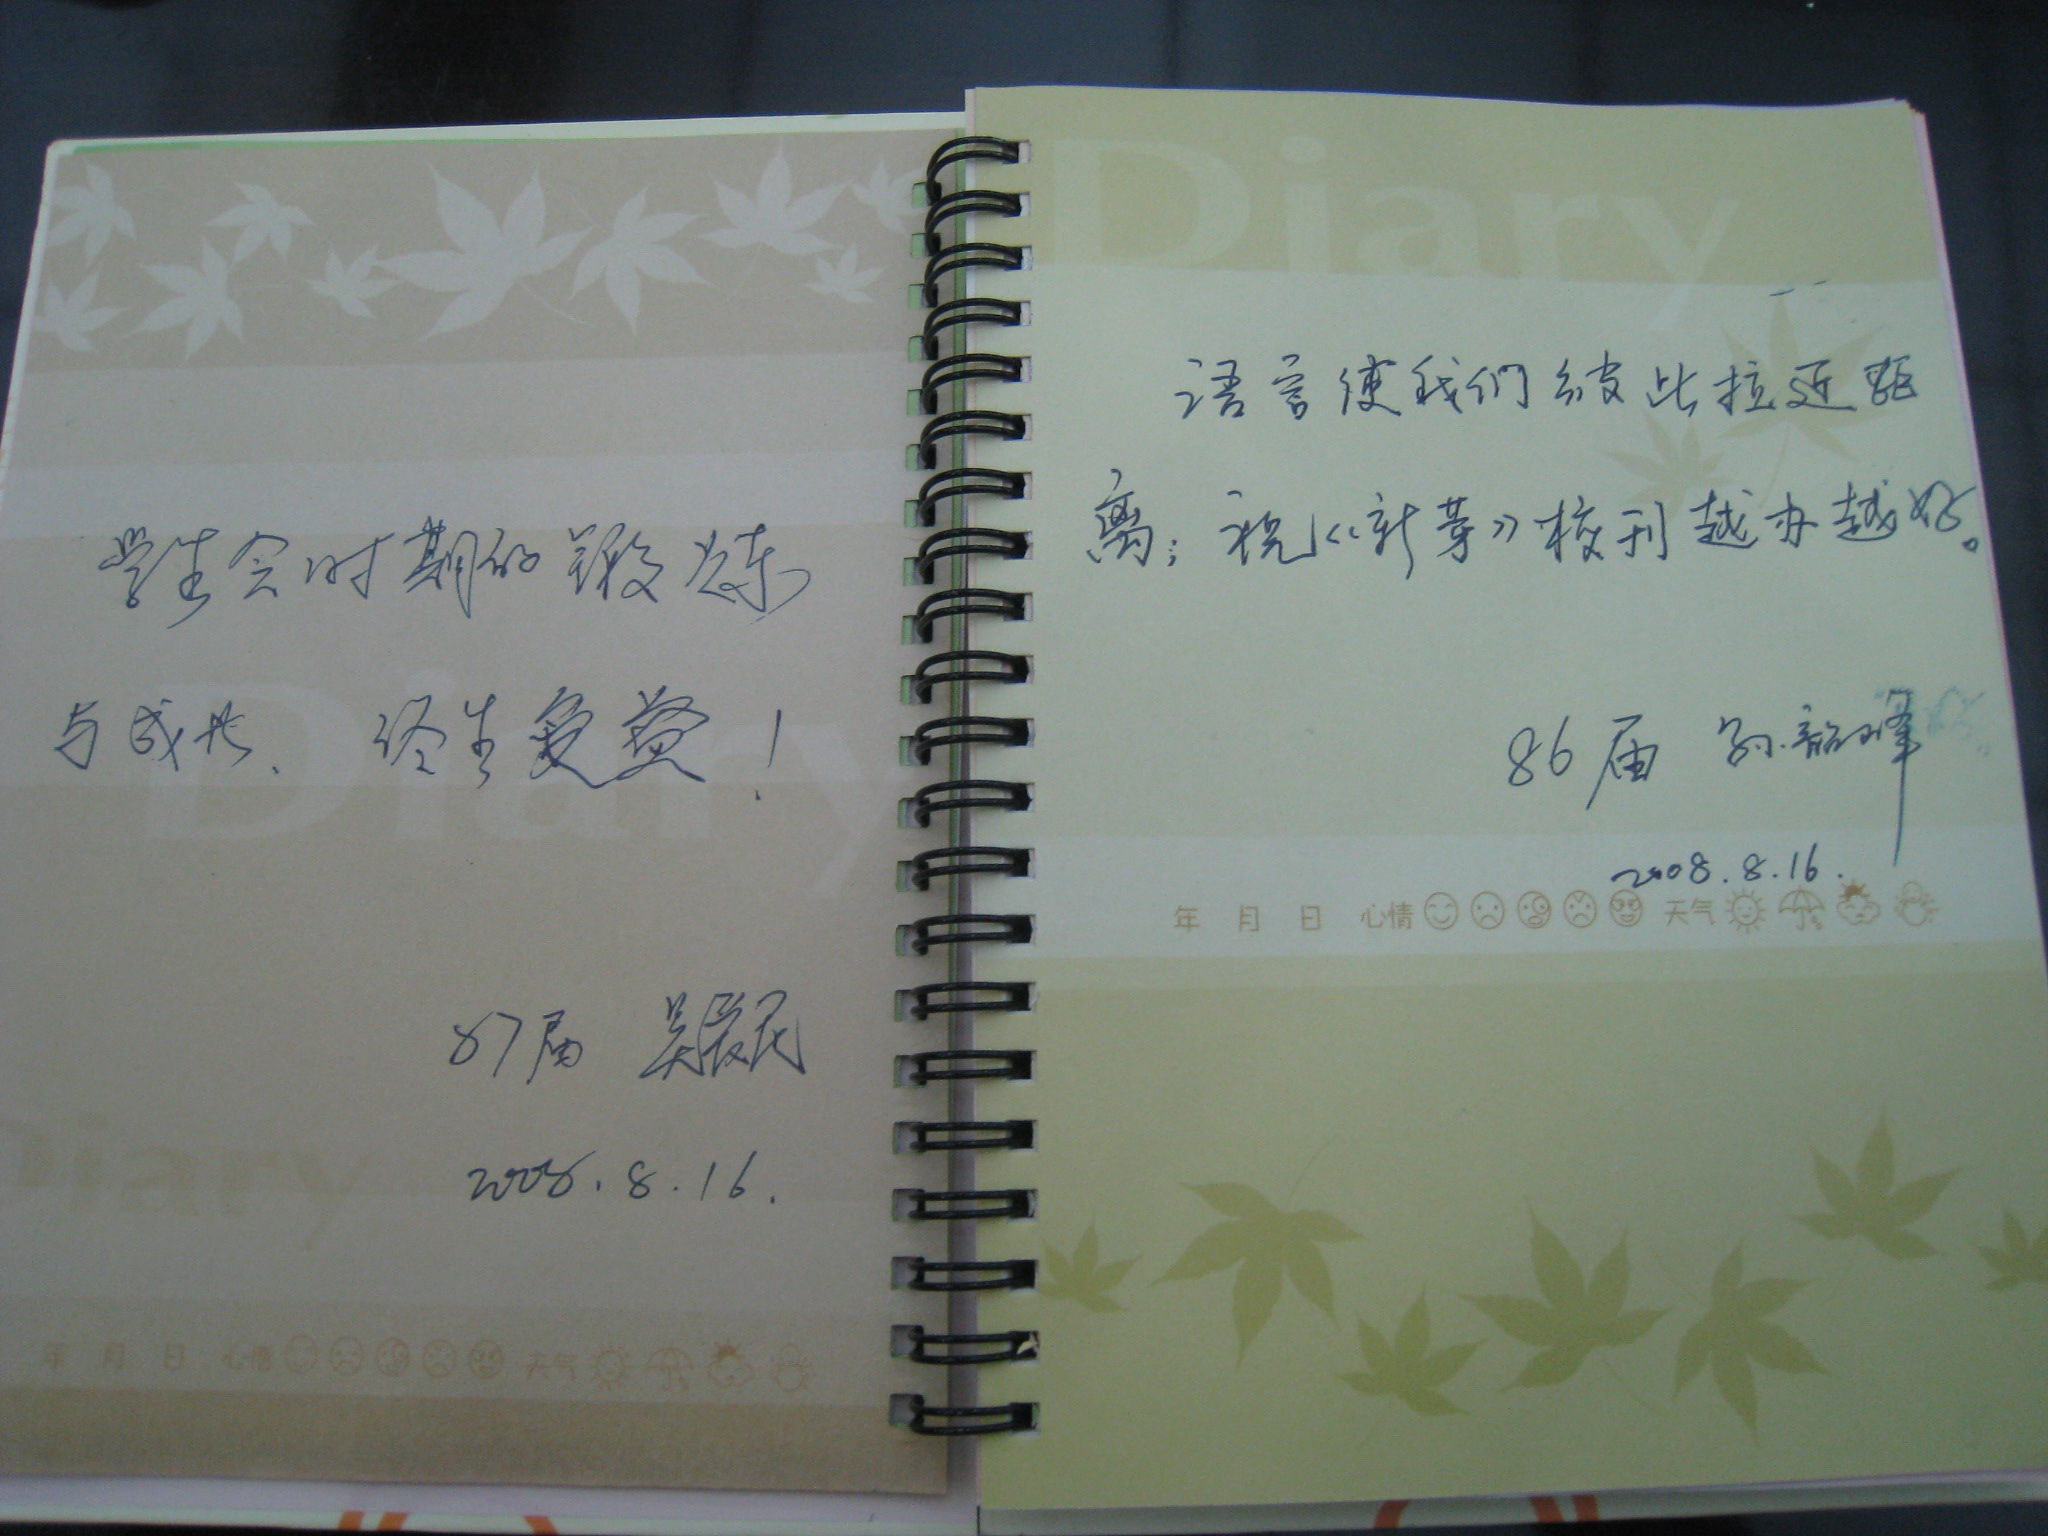 Diary
学生会时期的锻炼
与成长、终生受益！
Diary
87届 吴
2008.8.16.
Diary
年 月 日 心情 天气
Diary
语言使我们彼此拉近距
离；祝《新芽》校刊越办越好。
86届 孙韶峰
2008.8.16.
年 月 日 心情 天气